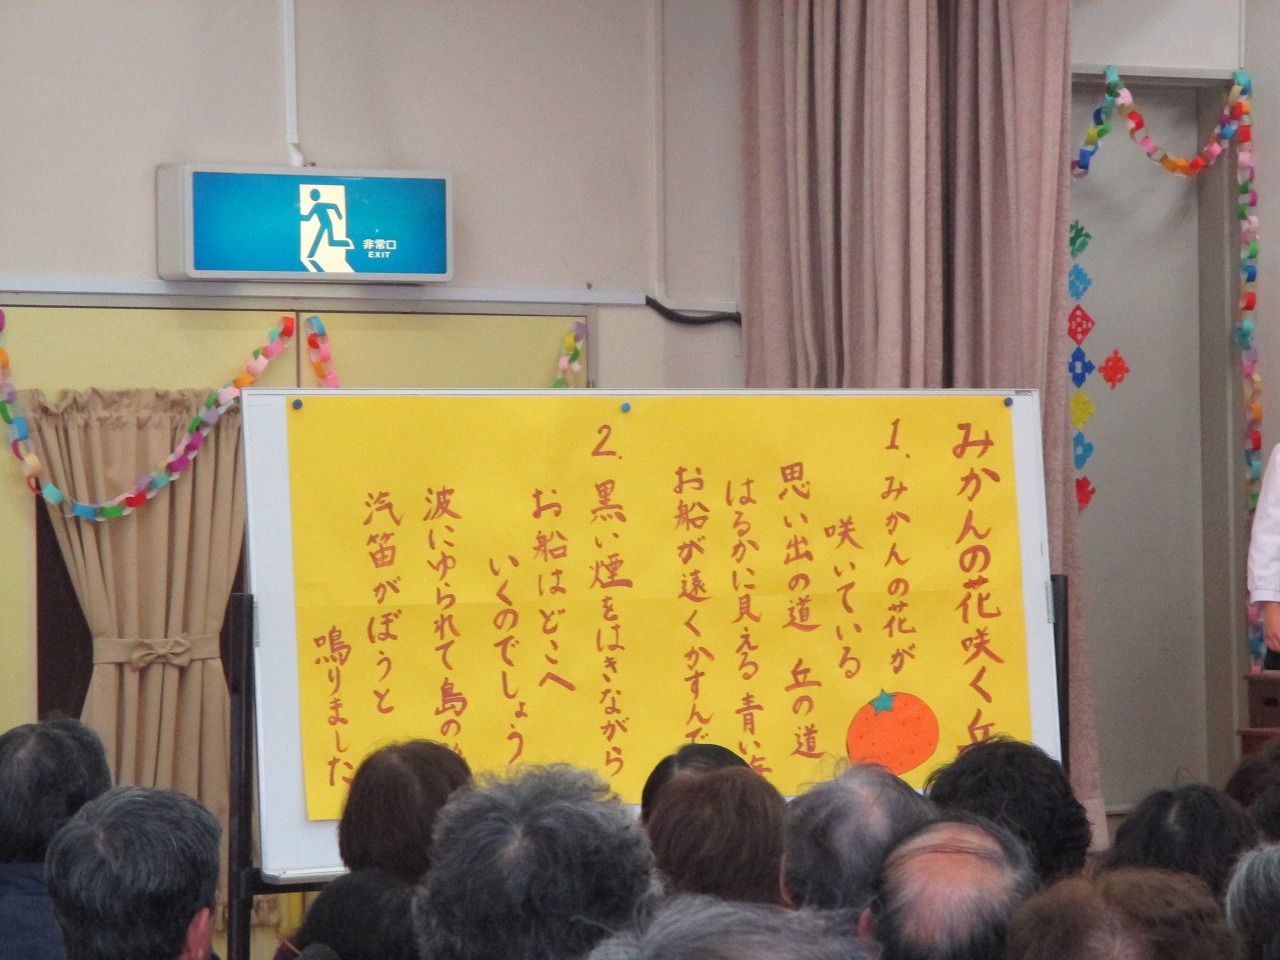 非常口
EXIT
みかんの花咲く丘
1. みかんの花が
咲いている
思い出の道 丘の道
はるかに見える 青い
お船が遠くかすんで
2. 黒い煙をはきながら
お船はどこへ
いくのでしょう
波にゆられて 島の
汽笛がぼうと
鳴りました